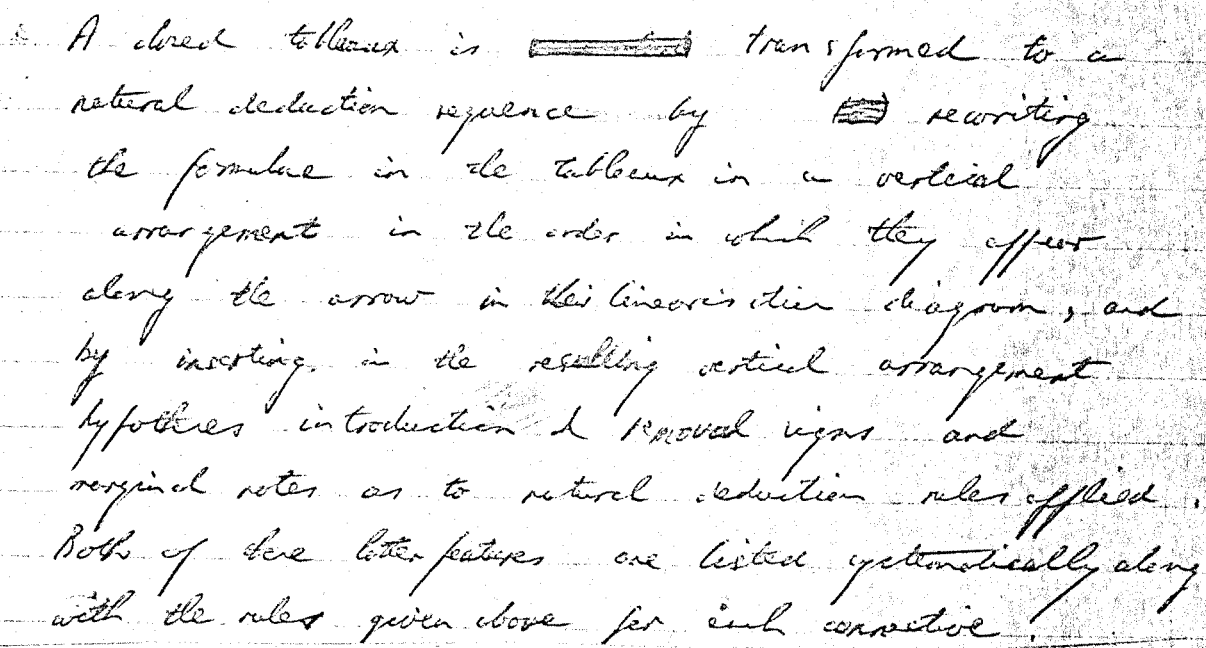 A closed tableaux is transformed to a
natural deduction sequence by rewriting
the formulae in the tableaux in a vertical
arrangement in the order in which they appear
along the arrow in their linearisation diagram, and
by inserting in the resulting vertical arrangement
hypotheses introduction & removal signs and
marginal notes as to natural deduction rules applied.
Both of these latter features are listed systematically along
with the rules given above for each connective.